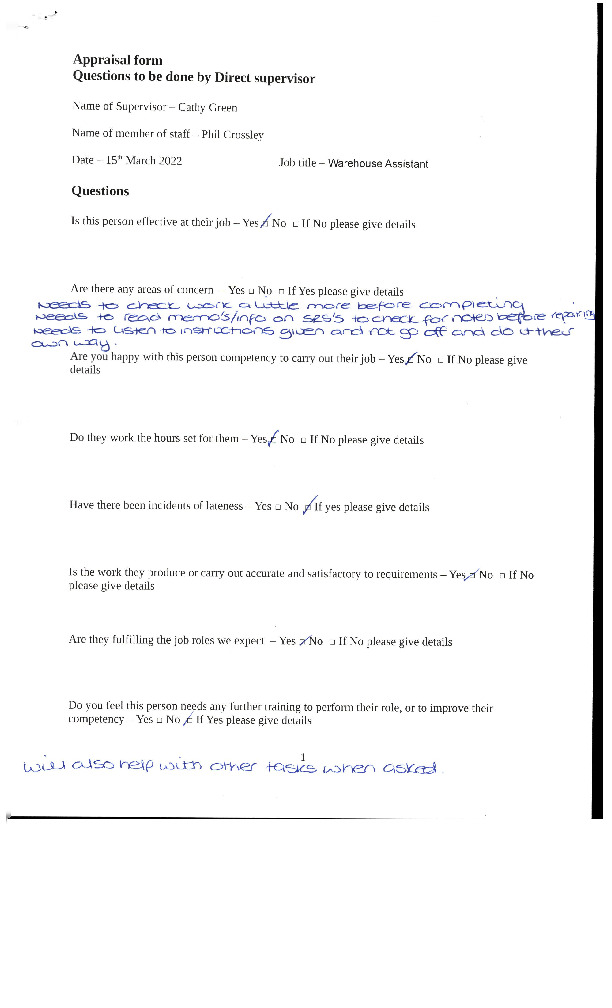 Appraisal form
Questions to be done by Direct supervisor
Name of Supervisor – Cathy Green
Name of member of staff – Phil Crossley
Date – 15th March 2022 Job title – Warehouse Assistant
Questions
Is this person effective at their job – Yes ☑ No □ If No please give details
Are there any areas of concern – Yes □ No □ If Yes please give details
Needs to check work a little more before completing
Needs to read memo's/info on SRS's to check for notes before repairing
Needs to listen to instructions given and not go off and do it their
own way.
Are you happy with this person competency to carry out their job – Yes ☑ No □ If No please give
details
Do they work the hours set for them – Yes ☑ No □ If No please give details
Have there been incidents of lateness – Yes □ No ☑ If yes please give details
Is the work they produce or carry out accurate and satisfactory to requirements – Yes ☑ No □ If No
please give details
Are they fulfilling the job roles we expect – Yes ☑ No □ If No please give details
Do you feel this person needs any further training to perform their role, or to improve their
competency – Yes □ No ☑ If Yes please give details
1
will also help with other tasks when asked.